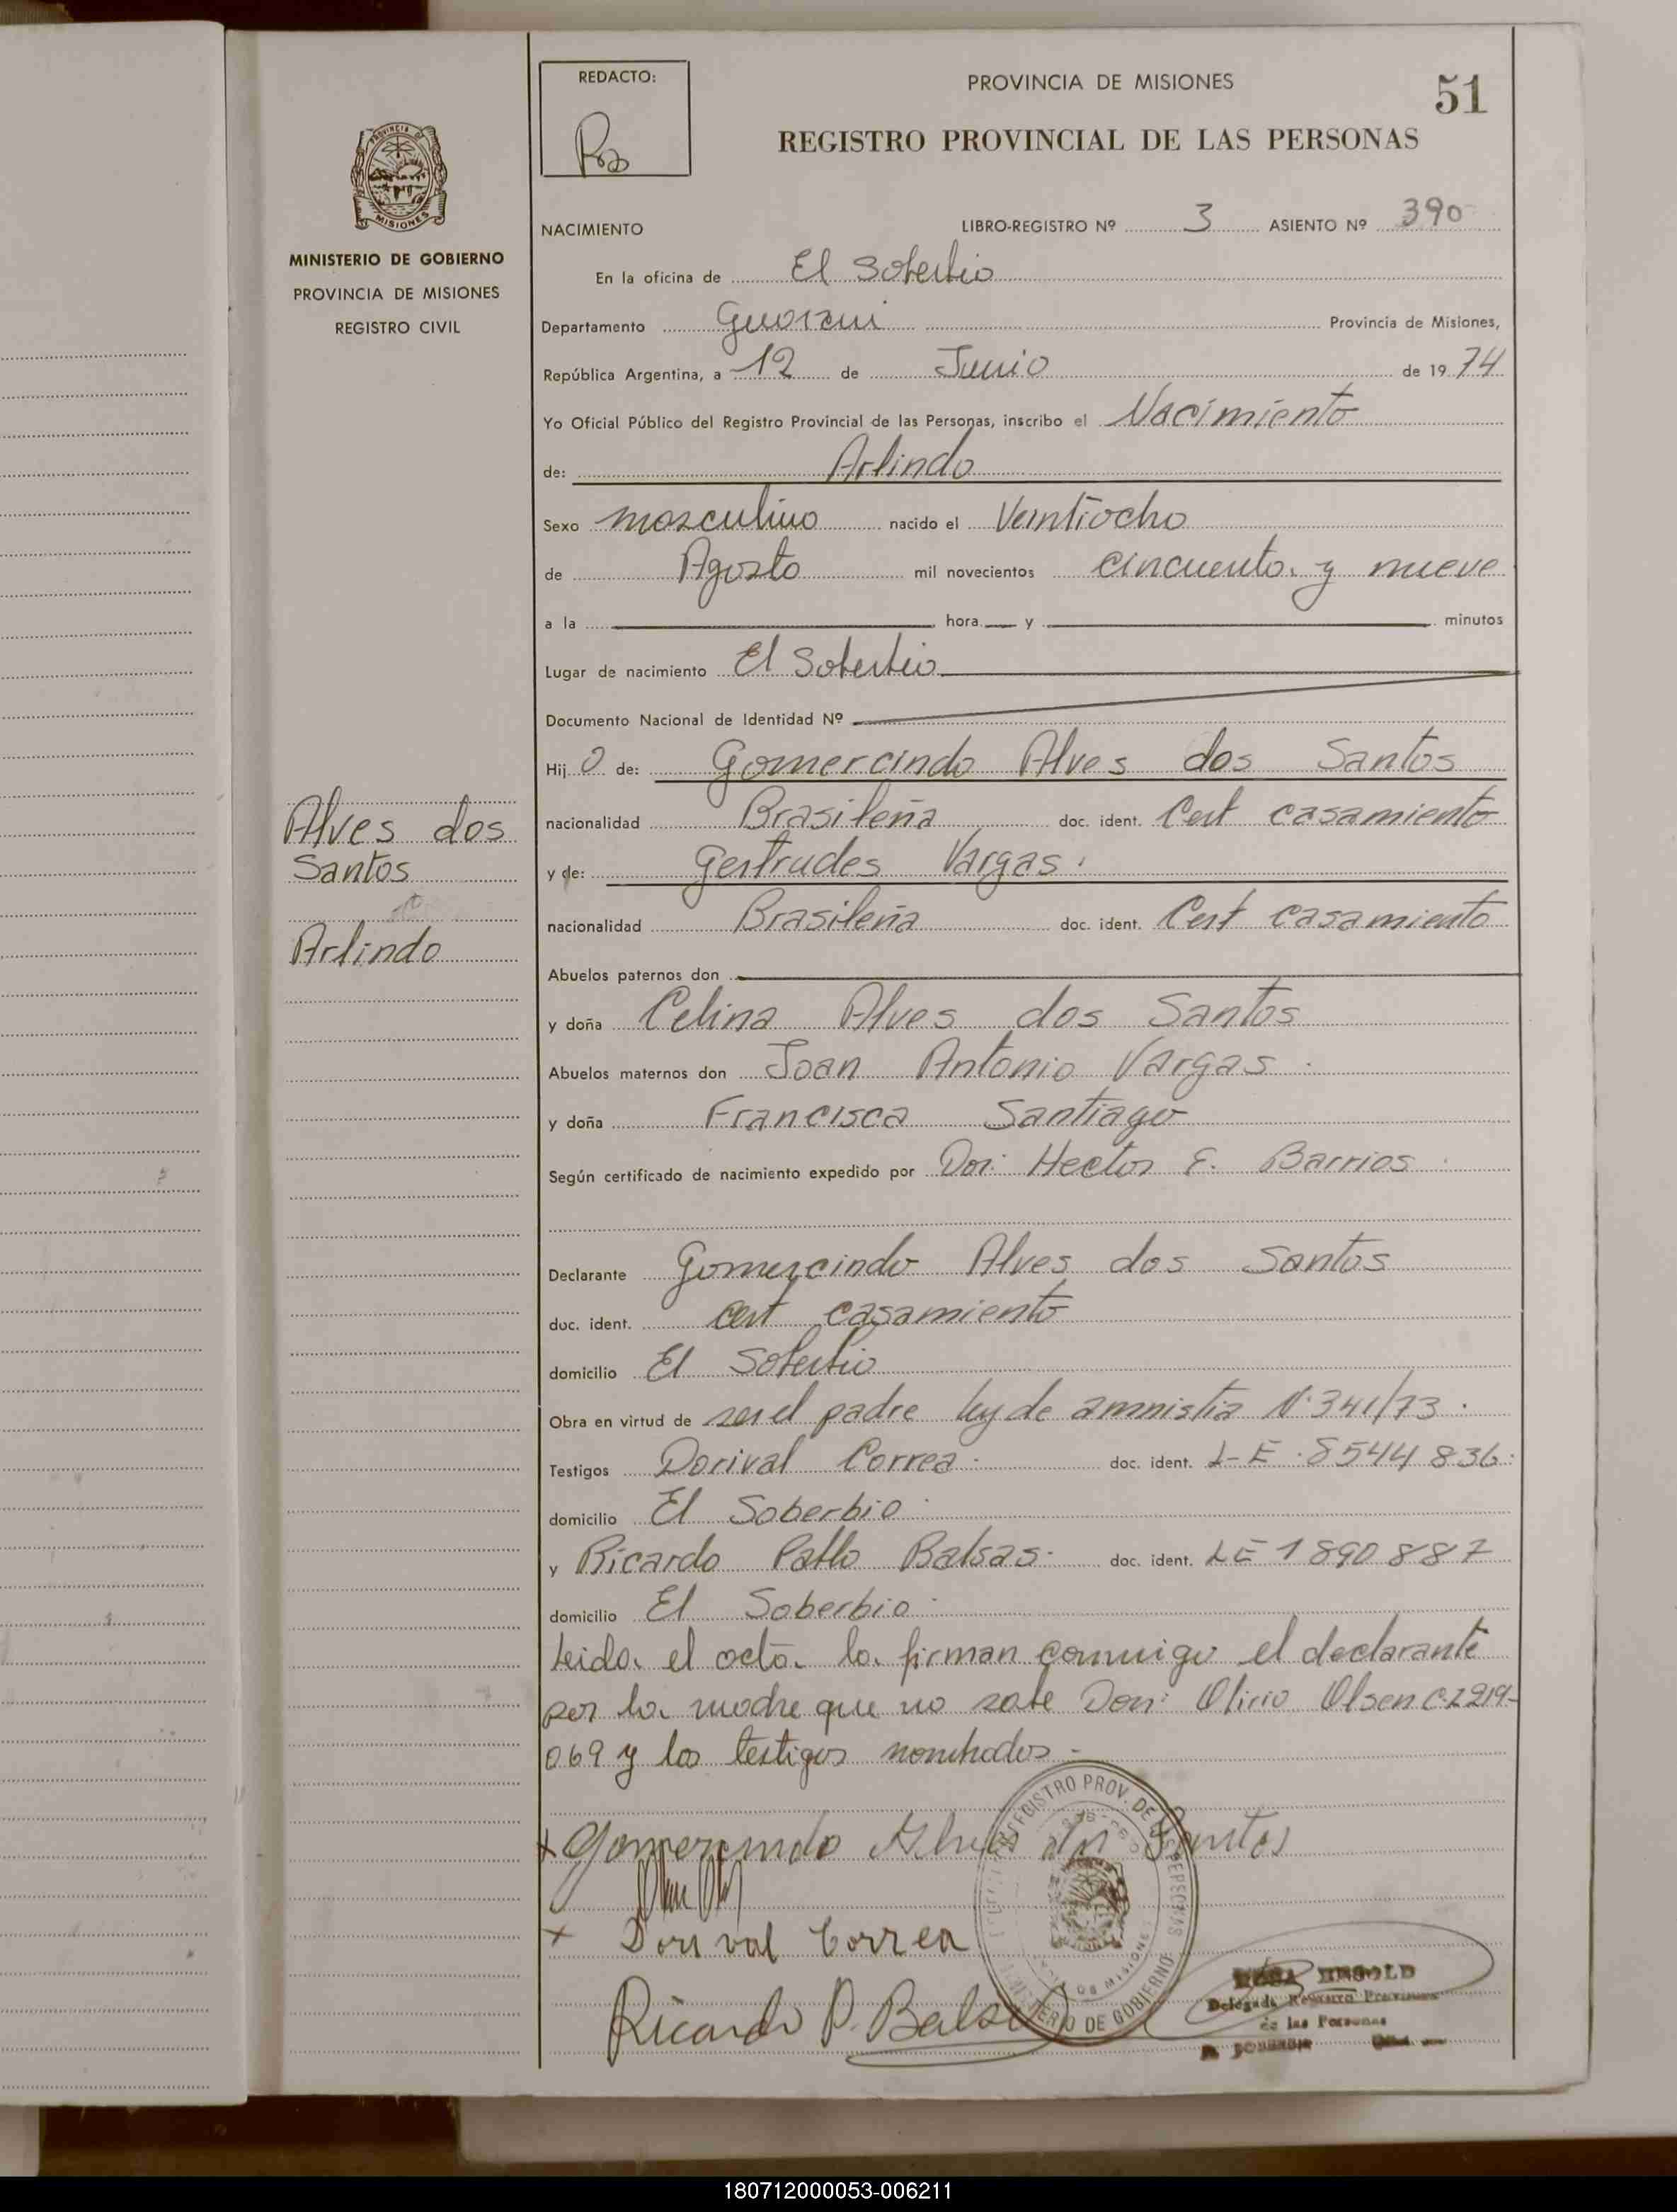 REDACTO:
PROVINCIA DE MISIONES
51
REGISTRO PROVINCIAL DE LAS PERSONAS
PROVINCIA DE
MISIONES
MINISTERIO DE GOBIERNO
PROVINCIA DE MISIONES
REGISTRO CIVIL
NACIMIENTO LIBRO-REGISTRO Nº 3 ASIENTO Nº 390
En la oficina de El Soberbio
Departamento Guarani Provincia de Misiones,
República Argentina, a 12 de Junio de 1974
Yo Oficial Público del Registro Provincial de las Personas, inscribo el Nacimiento
de: Arlindo
Sexo masculino nacido el Veintiocho
de Agosto mil novecientos cincuenta y nueve
a la hora y minutos
Lugar de nacimiento El Soberbio
Documento Nacional de Identidad Nº
Hijo de: Gomercindo Alves dos Santos
nacionalidad Brasileña doc. ident. Cert casamiento
y de: Gertrudes Vargas.
nacionalidad Brasileña doc. ident. Cert casamiento
Abuelos paternos don
y doña Celina Alves dos Santos
Abuelos maternos don Joan Antonio Vargas.
y doña Francisca Santiago
Según certificado de nacimiento expedido por Don: Hector E. Barrios.
Declarante Gomercindo Alves dos Santos
doc. ident. cert casamiento
domicilio El Soberbio
Obra en virtud de ser el padre ley de amnistia N. 341/73.
Testigos Dorival Correa. doc. ident. L-E. 8544836:
domicilio El Soberbio.
y Ricardo Pablo Balsas. doc. ident. LE 1890887
domicilio El Soberbio.
Leida el acta la firman conmigo el declarante
por la madre que no sabe Don: Olirio Olsen C.I 219-
069 y los testigos nombrados-
Alves dos
Santos
Arlindo
x Gomercindo Alves dos Santos
x Dorival Correa
Ricardo P. Balsas
REGISTRO PROV. DE LAS PERSONAS
MINISTERIO DE GOBIERNO
MISIONES
ROSA
Delegada Registro Provincial
de las Personas
180712000053-006211